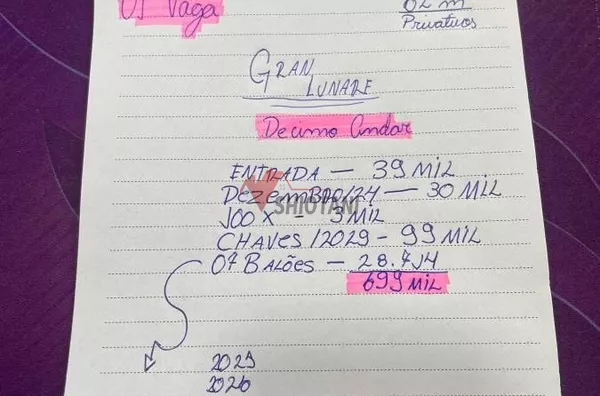 01 Vaga
62 m
Privativos
GRAN
LUNARE
Decimo Andar
ENTRADA — 39 MIL
DEZEMBRO/24 — 30 MIL
SHIOTANI
100 X - 3 MIL
CHAVES/2029 - 99 MIL
07 BALÕES — 28.714
699 MIL
2025
2026